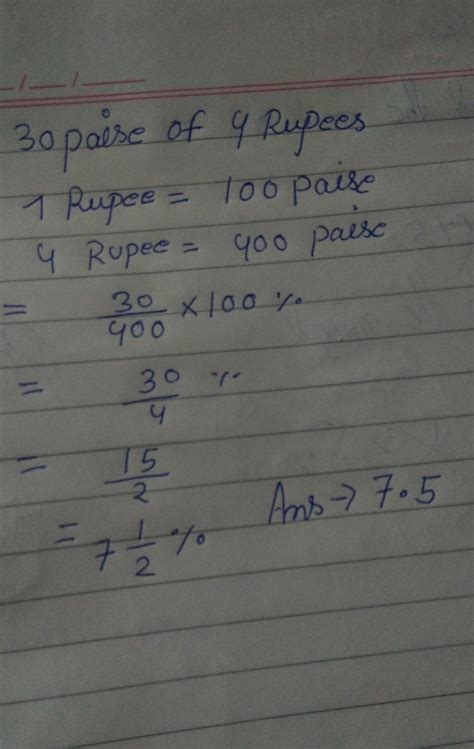 30 paise of 4 Rupees
1 Rupee = 100 paise
4 Rupee = 400 paise
= 30/400 × 100 %
= 30/4 %
= 15/2
= 7 1/2 %
Ans → 7.5